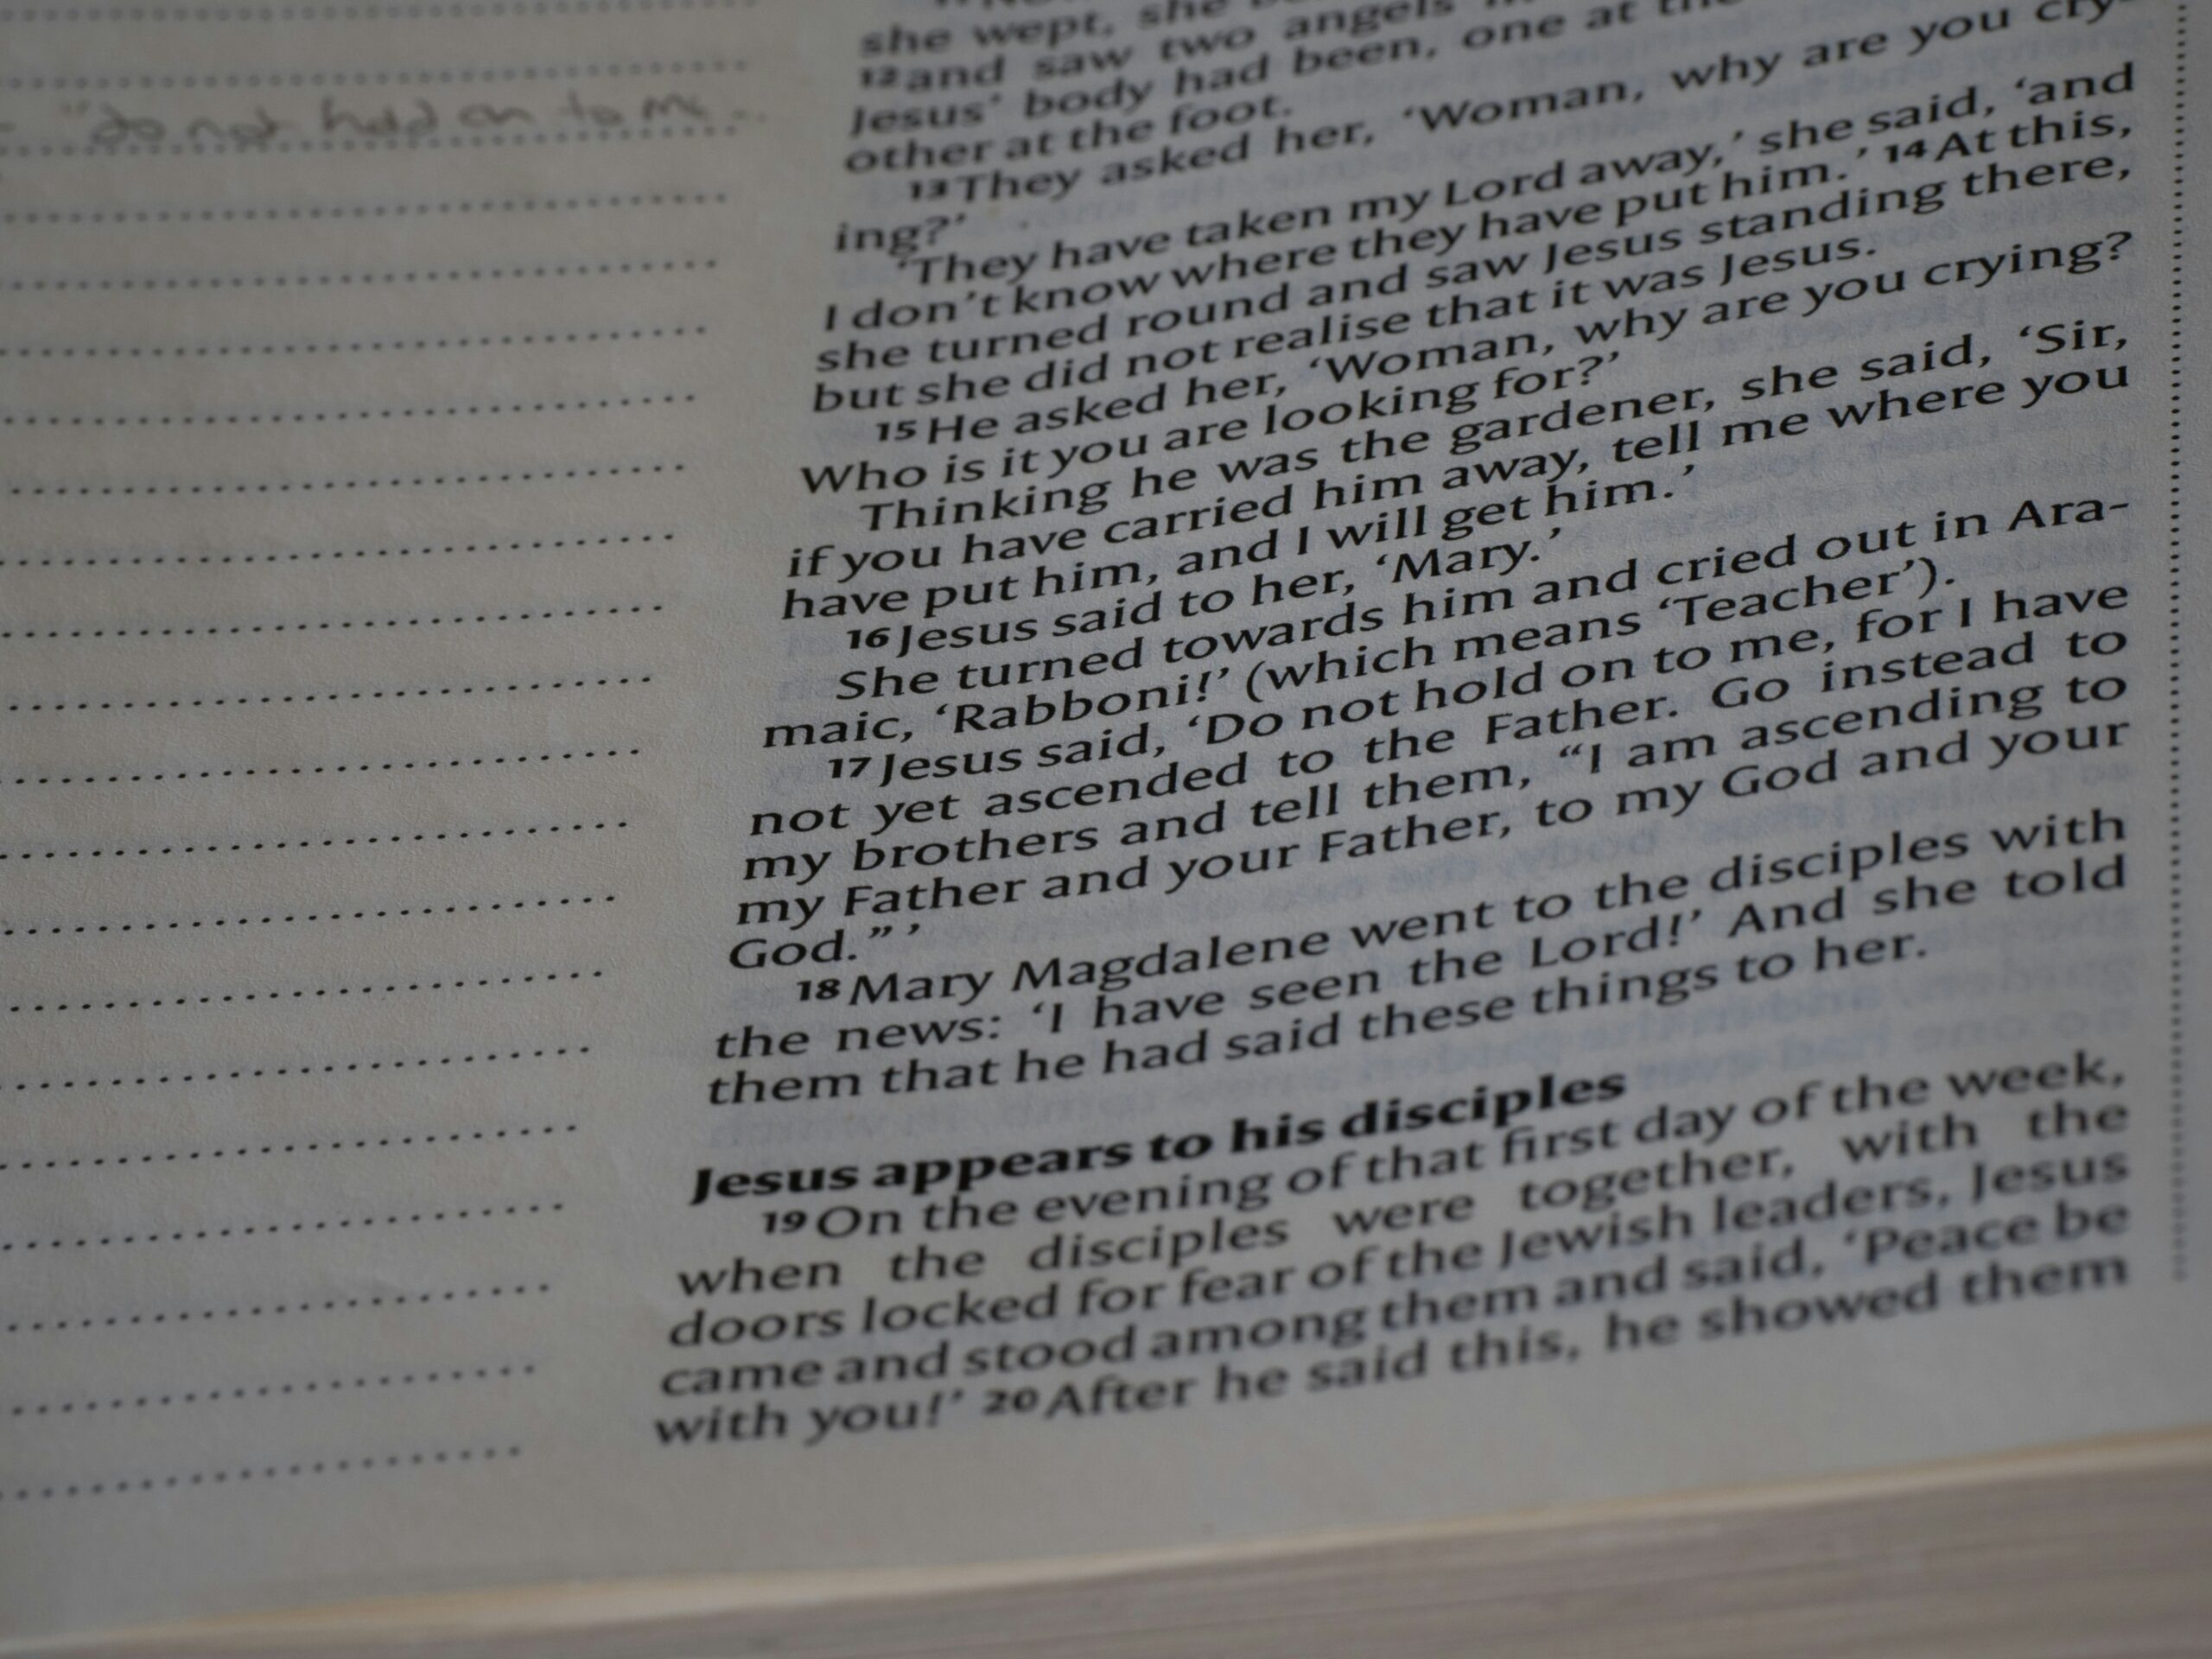 "do not hold on to me -
she wept, she
12 and saw two angels
Jesus' body had been, one at
other at the foot.
13 They asked her, 'Woman, why are you cry-
ing?'
'They have taken my Lord away,' she said, 'and
I don't know where they have put him.' 14 At this,
she turned round and saw Jesus standing there,
but she did not realise that it was Jesus.
15 He asked her, 'Woman, why are you crying?
Who is it you are looking for?'
Thinking he was the gardener, she said, 'Sir,
if you have carried him away, tell me where you
have put him, and I will get him.'
16 Jesus said to her, 'Mary.'
She turned towards him and cried out in Ara-
maic, 'Rabboni!' (which means 'Teacher').
17 Jesus said, 'Do not hold on to me, for I have
not yet ascended to the Father. Go instead to
my brothers and tell them, "I am ascending to
my Father and your Father, to my God and your
God." '
18 Mary Magdalene went to the disciples with
the news: 'I have seen the Lord!' And she told
them that he had said these things to her.
Jesus appears to his disciples
19 On the evening of that first day of the week,
when the disciples were together, with the
doors locked for fear of the Jewish leaders, Jesus
came and stood among them and said, 'Peace be
with you!' 20 After he said this, he showed them